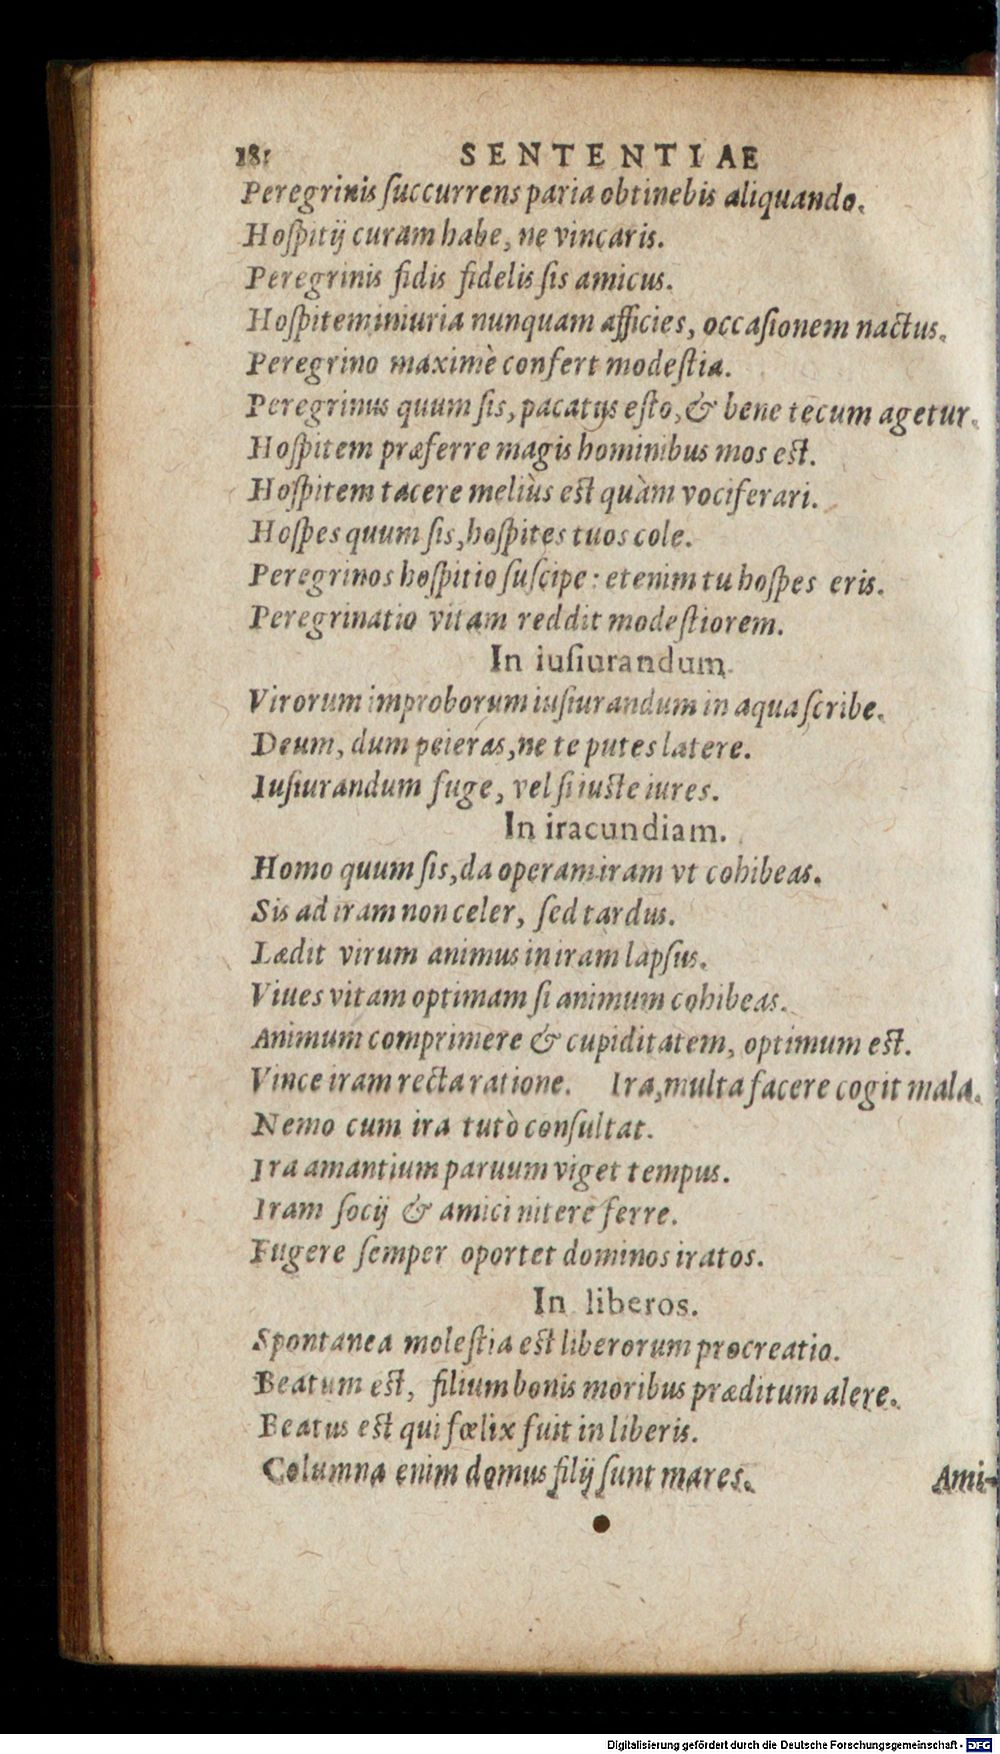 181 SENTENTIAE
Peregrinis ſuccurrens paria obtinebis aliquando.
Hoſpitij curam habe, ne vincaris.
Peregrinis fidis fidelis ſis amicus.
Hoſpitem iniuria nunquam afficies, occaſionem nactus.
Peregrino maximè confert modeſtia.
Peregrinus quum ſis, pacatus eſto, & bene tecum agetur.
Hoſpitem præferre magis hominibus mos eſt.
Hoſpitem tacere meliùs eſt quàm vociferari.
Hoſpes quum ſis, hoſpites tuos cole.
Peregrinos hoſpitio ſuſcipe: etenim tu hoſpes eris.
Peregrinatio vitam reddit modeſtiorem.
In iuſiurandum.
Virorum improborum iuſiurandum in aqua ſcribe.
Deum, dum peieras, ne te putes latere.
Iuſiurandum fuge, vel ſi iuſte iures.
In iracundiam.
Homo quum ſis, da operam iram vt cohibeas.
Sis ad iram non celer, ſed tardus.
Lædit virum animus in iram lapſus.
Viues vitam optimam ſi animum cohibeas.
Animum comprimere & cupiditatem, optimum eſt.
Vince iram recta ratione. Ira, multa facere cogit mala.
Nemo cum ira tutò conſultat.
Ira amantium paruum viget tempus.
Iram ſocij & amici nitere ferre.
Fugere ſemper oportet dominos iratos.
In liberos.
Spontanea moleſtia eſt liberorum procreatio.
Beatum eſt, filium bonis moribus præditum alere.
Beatus eſt qui fœlix fuit in liberis.
Columna enim domus filij ſunt mares.
Ami-
Digitalisierung gefördert durch die Deutsche Forschungsgemeinschaft - DFG